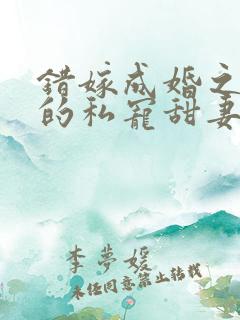 错嫁成婚之
的私宠甜妻
李梦媛
未经同意禁止转载